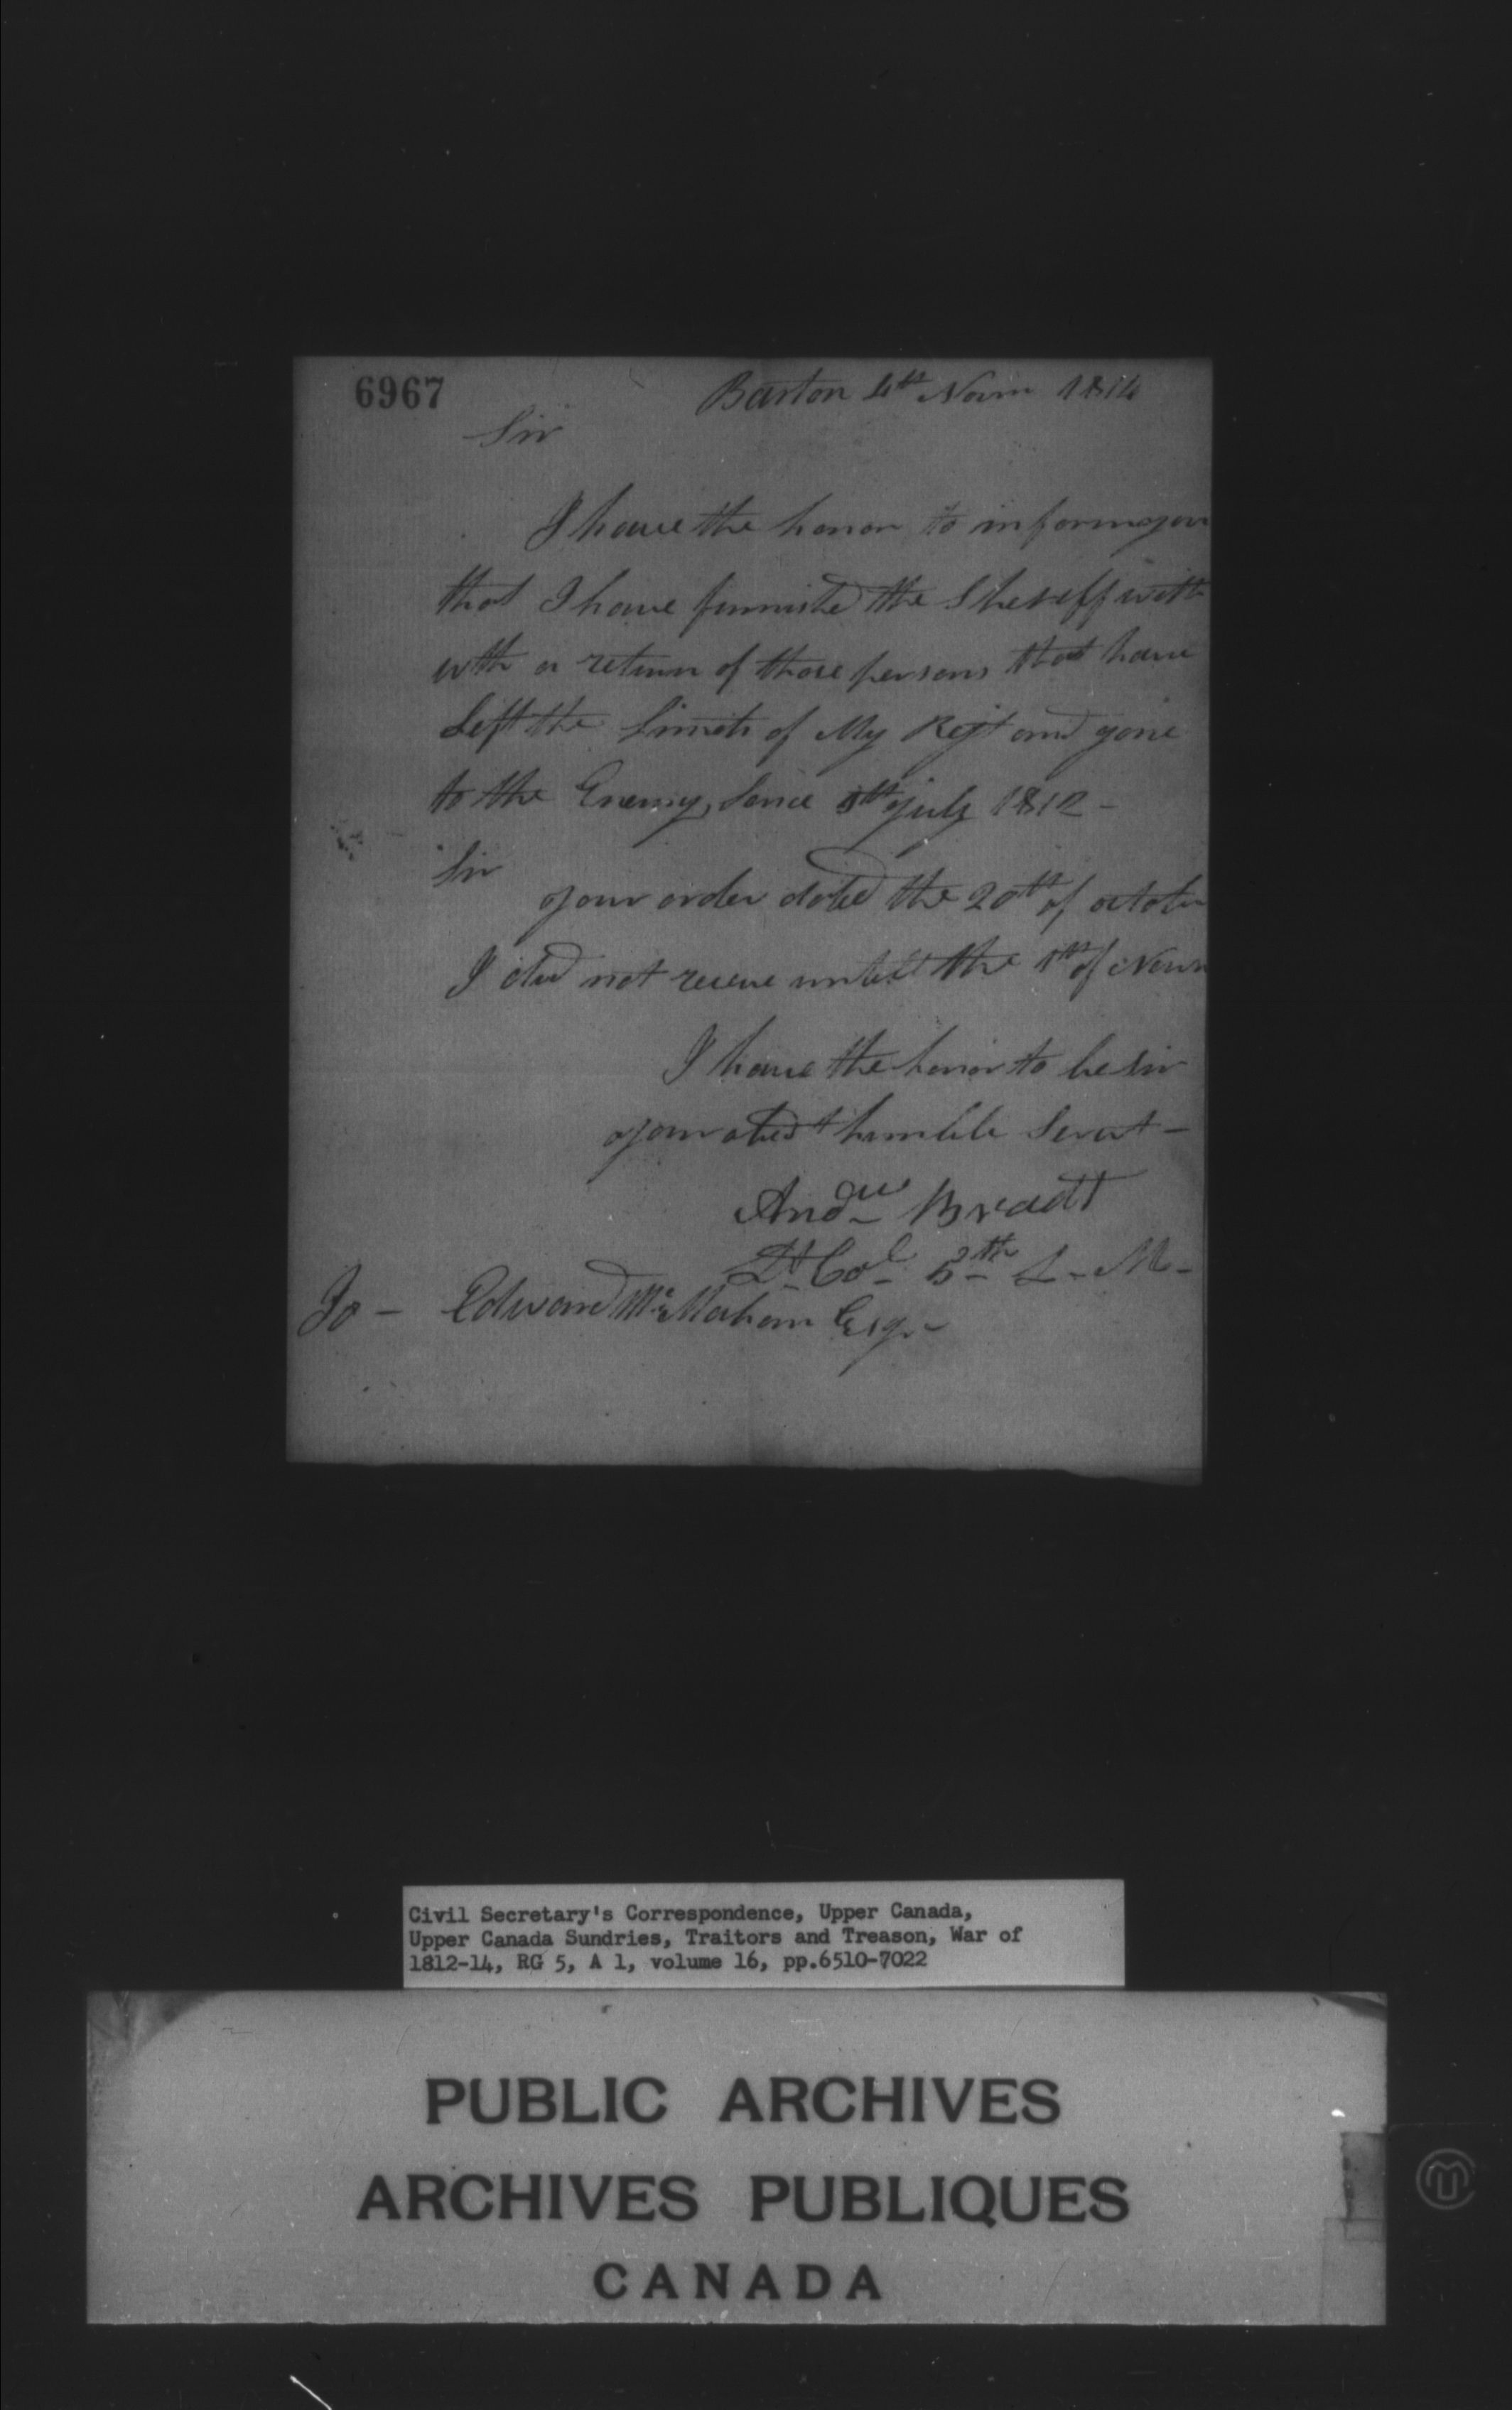 6967
Barton 4th Novm 1814
Sir
I have the honor to inform you
that I have furnisted the Sheriff with
with a return of those persons that have
Left the Limits of My Regt and gone
to the Enemy, Since 1th July 1812 -
Sir
your order dated the 20th of october
I did not receve untill the 1th of Novm
I have the honor to be Sir
your obedt humble Servt -
Andw Bradt
Lt Col 5th L - M -
To - Edward McMahon Esqr -
Civil Secretary's Correspondence, Upper Canada,
Upper Canada Sundries, Traitors and Treason, War of
1812-14, RG 5, A 1, volume 16, pp.6510-7022
PUBLIC ARCHIVES
ARCHIVES PUBLIQUES
CANADA